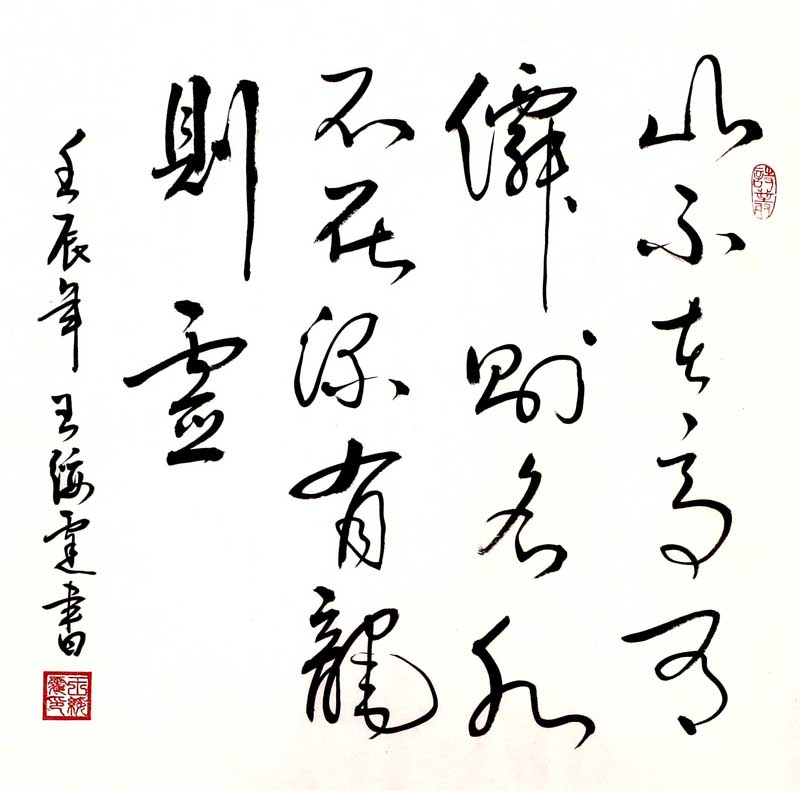 山不在高有
僊則名水
不在深有龍
則靈
壬辰年 王綏霆書